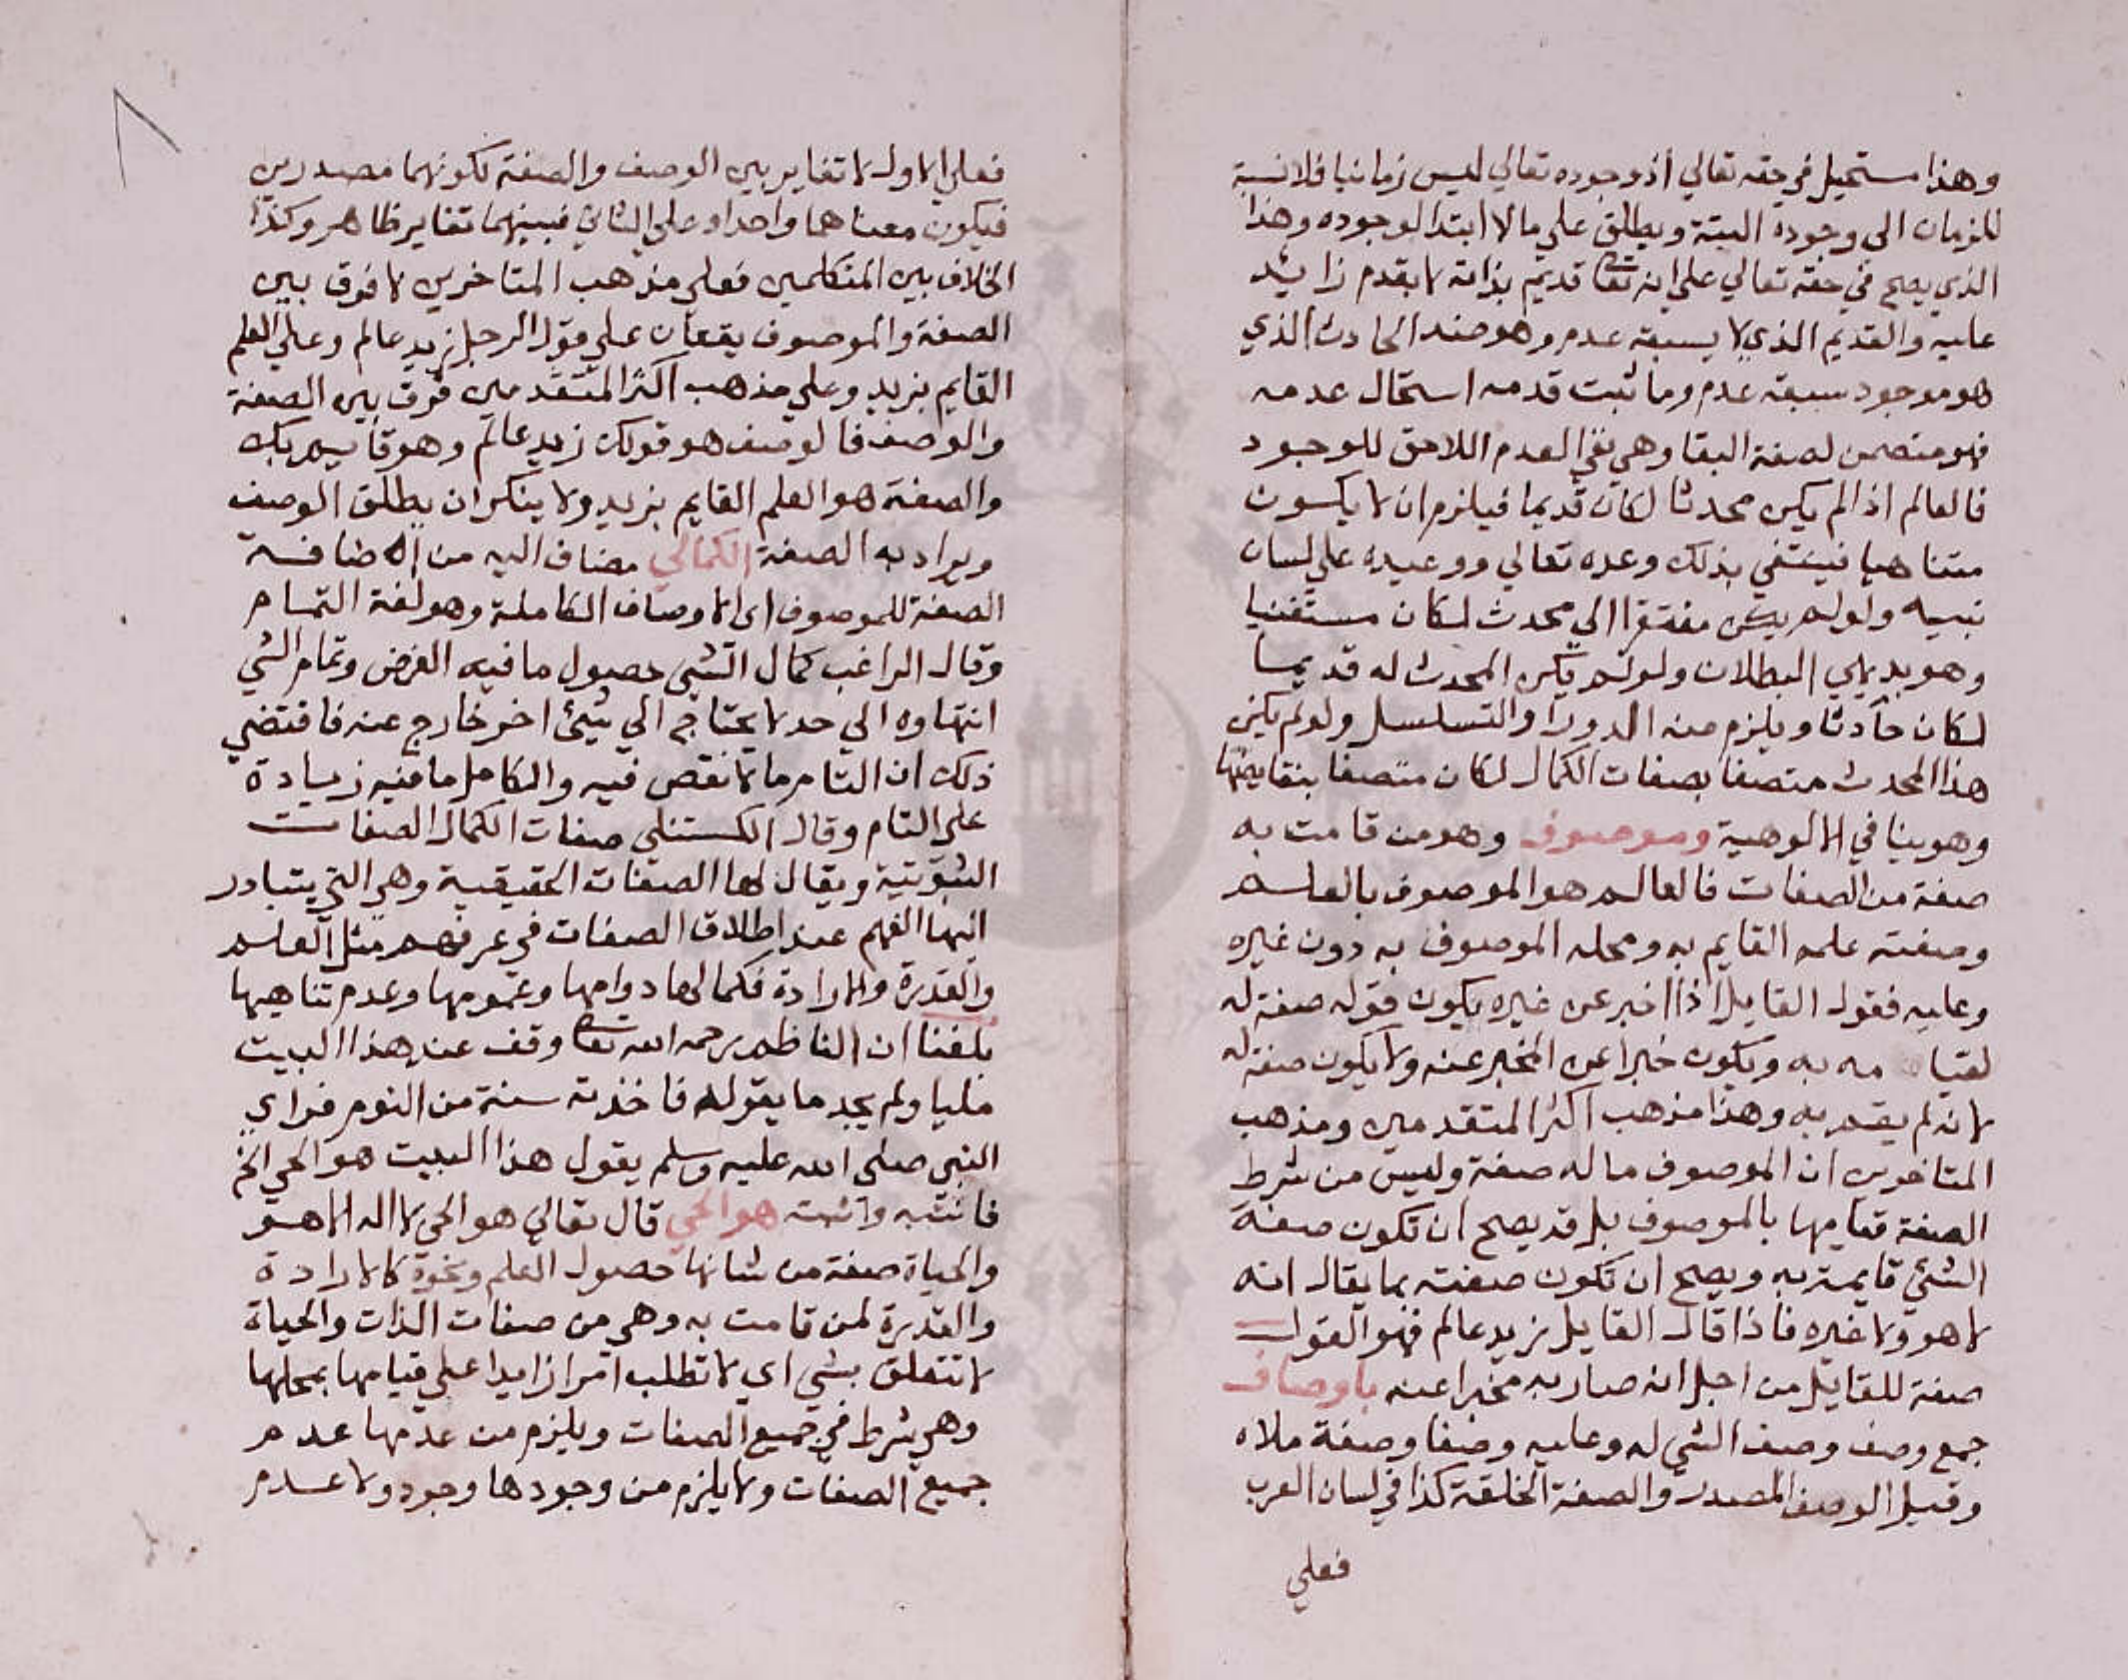 وهذا مستحيل في حقه تعالي اذ وجوده تعالي ليس زمانيا فلا نسبة
للزمان الى وجوده البتة ويطلق علي ما لا ابتدا لوجوده وهذا
الذي يصح في حقه تعالي علي انه تعا قديم بذاته لا بقدم زايد
عليه والقديم الذي لا يسبقه عدم وهو ضد الحادث الذي
هو موجود سبقه عدم وما ثبت قدمه استحال عدمه
فهو متضمن لصفة البقا وهي نفي العدم اللاحق للوجود
فالعالم اذا لم يكن محدثا لكان قديما فيلزم ان لا يكون
متناهيا فينتفي بذلك وعده تعالي ووعيده علي لسان
نبيه ولو لم يكن مفتقرا الي محدث لكان مستغنيا
وهو بديهي البطلان ولو لم يكن المحدث له قديما
لكان حادثا ويلزم منه الدور او التسلسل ولو لم يكن
هذا المحدث متصفا بصفات الكمال لكان متصفا بنقايضها
وهو ينافي الالوهية وموصوف وهو من قامت به
صفة من الصفات فالعالم هو الموصوف بالعلم
وصفته علمه القايم به ومحله الموصوف به دون غيره
وعليه فقول القايل اذا اخبر عن غيره يكون قوله صفة له
لقيامه به ويكون خبرا عن المخبر عنه ولا يكون صفة له
لانه لم يقم به وهذا مذهب اكثر المتقدمين ومذهب
المتاخرين ان الموصوف ما له صفة وليس من شرط
الصفة قيامها بالموصوف بل قد يصح ان تكون صفة
الشئ قايمة به ويصح ان تكون صفته بما يقال انه
لا هو ولا غيره فاذا قال القايل زيد عالم فهو القول
صفة للقايل من اجل انه صار به مخبرا عنه باوصاف
جمع وصف وصف الشي له وعليه وصفا وصفة حلاه
وقيل الوصف المصدر والصفة الخلقة كذا في لسان العرب
فعلي
فعلي الاول لا تغاير بين الوصف والصفة لكونهما مصدرين
فيكون معناهما واحدا وعلي الثاني فبينهما تغاير ظاهر وكذا
الخلاف بين المتكلمين فعلي مذهب المتاخرين لا فرق بين
الصفة والموصوف يقعان علي قول الرجل زيد عالم وعلي العلم
القايم بزيد وعلي مذهب اكثر المتقدمين فرق بين الصفة
والوصف فالوصف هو قولك زيد عالم وهو قايم بك
والصفة هو العلم القايم بزيد ولا ينكر ان يطلق الوصف
ويراد به الصفة الكمالي مضاف اليه من اضافة
الصفة للموصوف اى الاوصاف الكاملة وهو لغة التمام
وقال الراغب كمال الشي حصول ما فيه الغرض وتمام الشي
انتهاوه الي حد لا يحتاج الي شئ اخر خارج عنه فاقتضي
ذلك ان التام ما لا نقص فيه والكامل ما فيه زيادة
على التام وقال الكستلي صفات الكمال الصفات
الثبوتية ويقال لها الصفات الحقيقية وهي التي يتبادر
اليها الفهم عند اطلاق الصفات في عرفهم مثل العلم
والقدرة والارادة فكمالها دوامها وعمومها وعدم تناهيها
بلغنا ان الناظم رحمه الله تعا وقف عند هذا البيت
مليا ولم يجد ما يقوله فاخذته سنة من النوم فراي
النبي صلى الله عليه وسلم يقول هذا البيت هو الحي الخ
فانتبه واثبته هو الحي قال تعالي هو الحي لا اله الا هو
والحياة صفة من شانها حصول العلم ونحوه كالارادة
والقدرة لمن قامت به وهي من صفات الذات والحياة
لا تتعلق بشي اي لا تطلب امرا زايدا علي قيامها بمحلها
وهي شرط في جميع الصفات ويلزم من عدمها عدم
جميع الصفات ولا يلزم من وجودها وجود ولا عدم